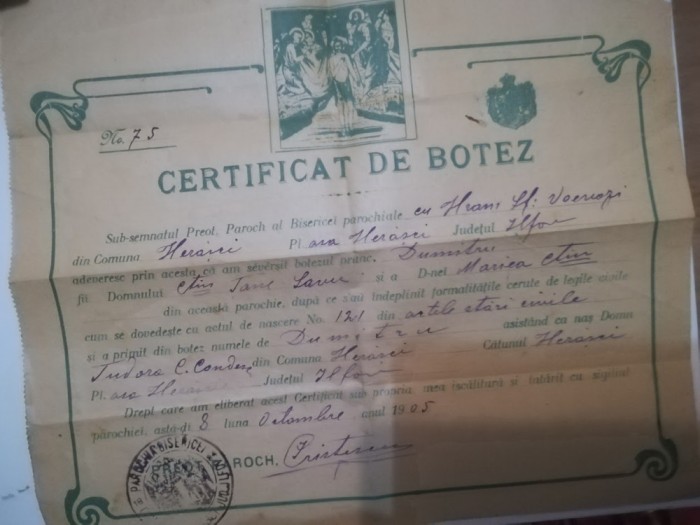 No. 75
CERTIFICAT DE BOTEZ
Sub-semnatul Preot, Paroch al Bisericei parochiale cu Hram Sf. Voevozi
din Comuna Herăsci Pl. Herăsci Județul Ilfov
adeveresc prin acesta, că am săvêrșit botezul prunc. Dumitru
fii Domnului Tane Savu și a D-nei Marica
din aceastâ parochie, după ce s'au îndeplinit formalitățile cerute de legile civile
cum se dovedește cu actul de nascere No. 121 din actele stări civile
și a primit din botez numele de Dumitru asistând ca naș Domn
Tudora C. din Comuna Herăsci Cătunul Herăsci
Pl. Județul Ilfov
Drept care am eliberat acest Certificat sub propria mea iscălitură și întărit cu sigiliul
parochiei, astă-di 8 luna Octombre anul 1905
PAROCHIA BISERICEI
ROCH,